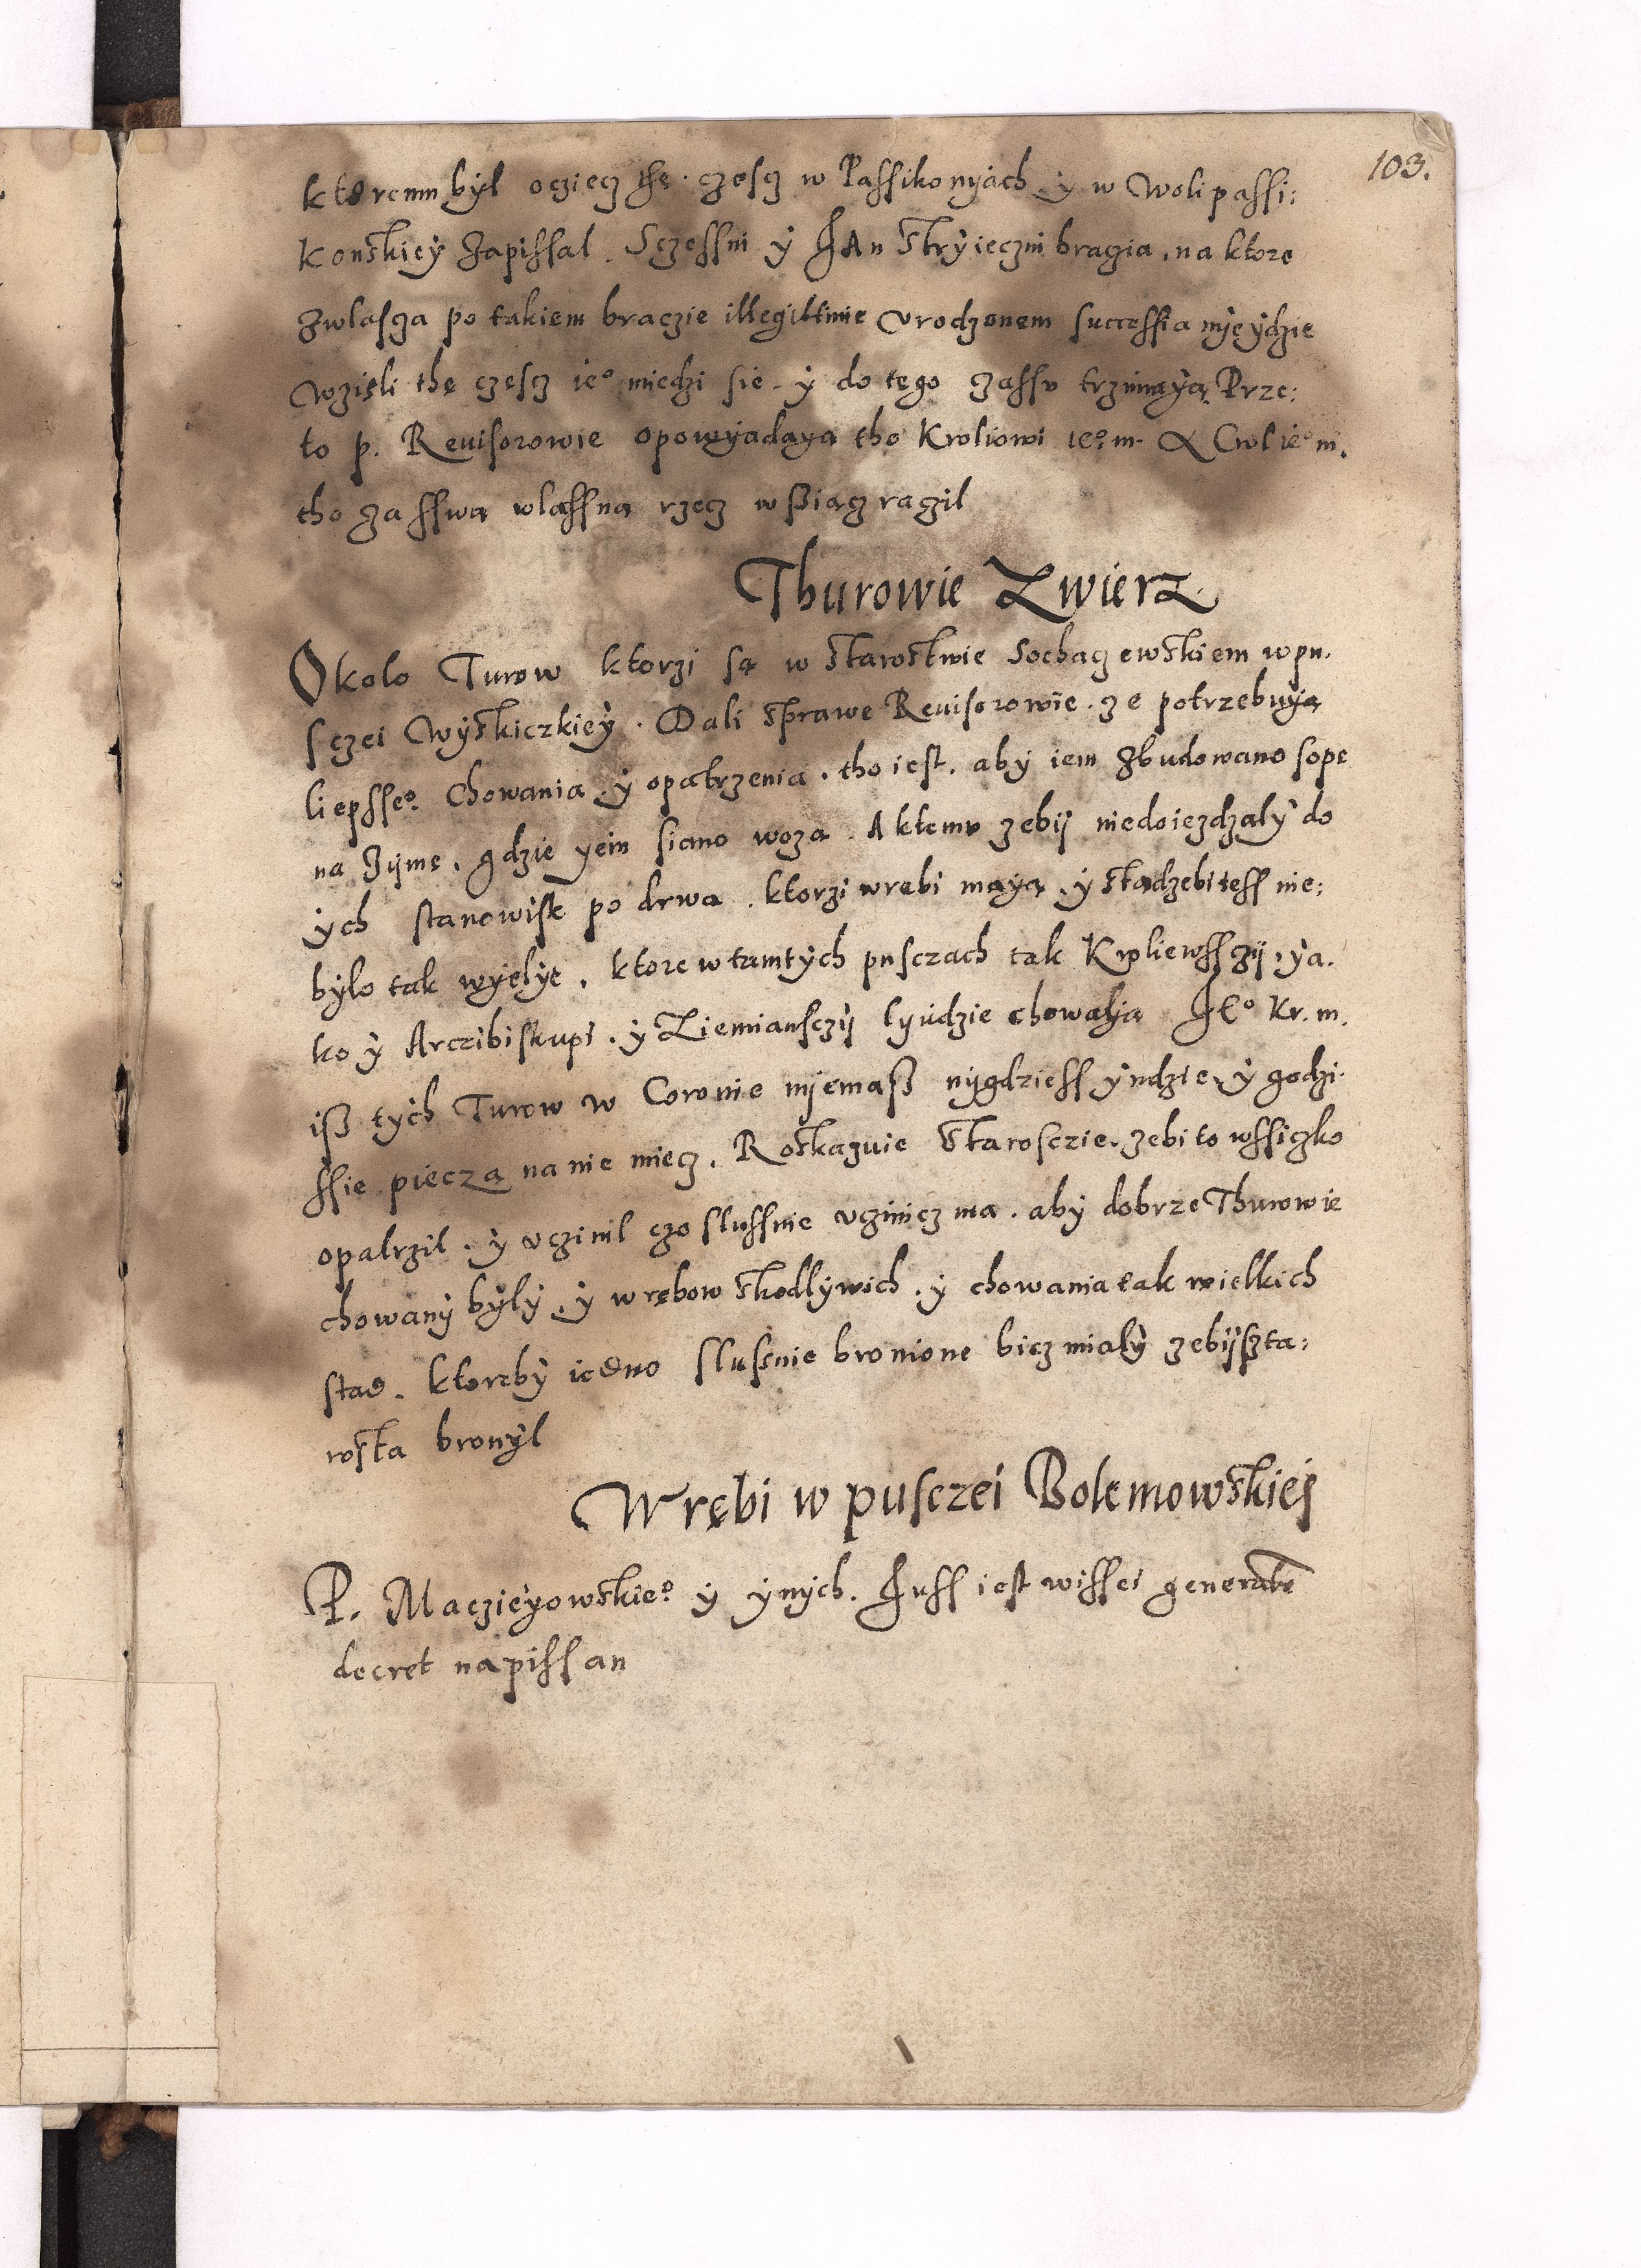 103.
ktoremu był ocziecz thę częscz w Passikonyach y w Woli passi:
konskiey zapissał. Sczessni y Jan Stryieczni bracia, na ktore
zwlascza po takiem braczie illegittime vrodzonem successia nyeydzie
wzięli thę częscz ieº miedzi sie y do tego czassv trzimaya, Prze:
to p. Reuisorowie opowyadaya tho Krolowi ieº m. A Crol ieº m.
tho za sswa wlassna rzecz wßiacz raczil
Thurowie Zwierz
Okolo Turow ktorzi są w starostwie Sochaczewskiem w pu.
sczei Wyskiczkiey. Dali sprawe Reuisorowie. ze potrzebuya
liepsseº chowania y opatrzenia. tho iest. aby iem zbudowano sope
na zyme. gdzie yem siano woza. A ktemu zebÿ niedoiezdzaly do
ych stanowisk po drwa. ktorzi wrębi maya. y stadzebi tess nie:
bylo tak wyelye. ktore w tamtych pusczach tak Kroliewsszÿ, ya.
ko y Arczibiskupi. y Ziemiansczÿ lyudzie chowaya Jeº Kr. m.
iß tych Turow w Coronie nyemaß nygdziess yndzie, y godzi.
ssie piecza na nie miecz. Roskazuie Staroscie. zebi to wssiczko
opatrzil. y vczinil czo slussnie vczinicz ma. aby dobrze Thurowie
chowany byly, y wrębow skodlywich. y chowania tak wielkich
stad. ktoreby iedno slusnie bronione bicz mialy zebÿ sta:
rosta bronyl
Wrębi w pusczei Bolemowskiei
P. Macziejowskieº y ynych. Juss iest wissei generale
decret napissan